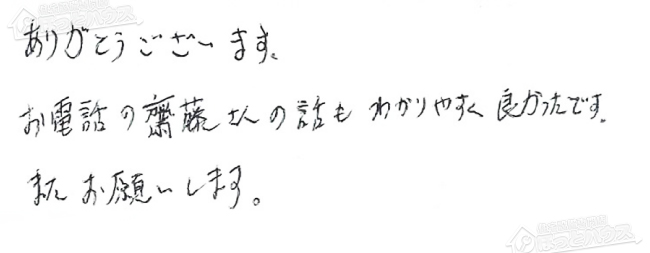 ありがとうございます。
お電話の齋藤さんの話もわかりやすく良かったです。
またお願いします。